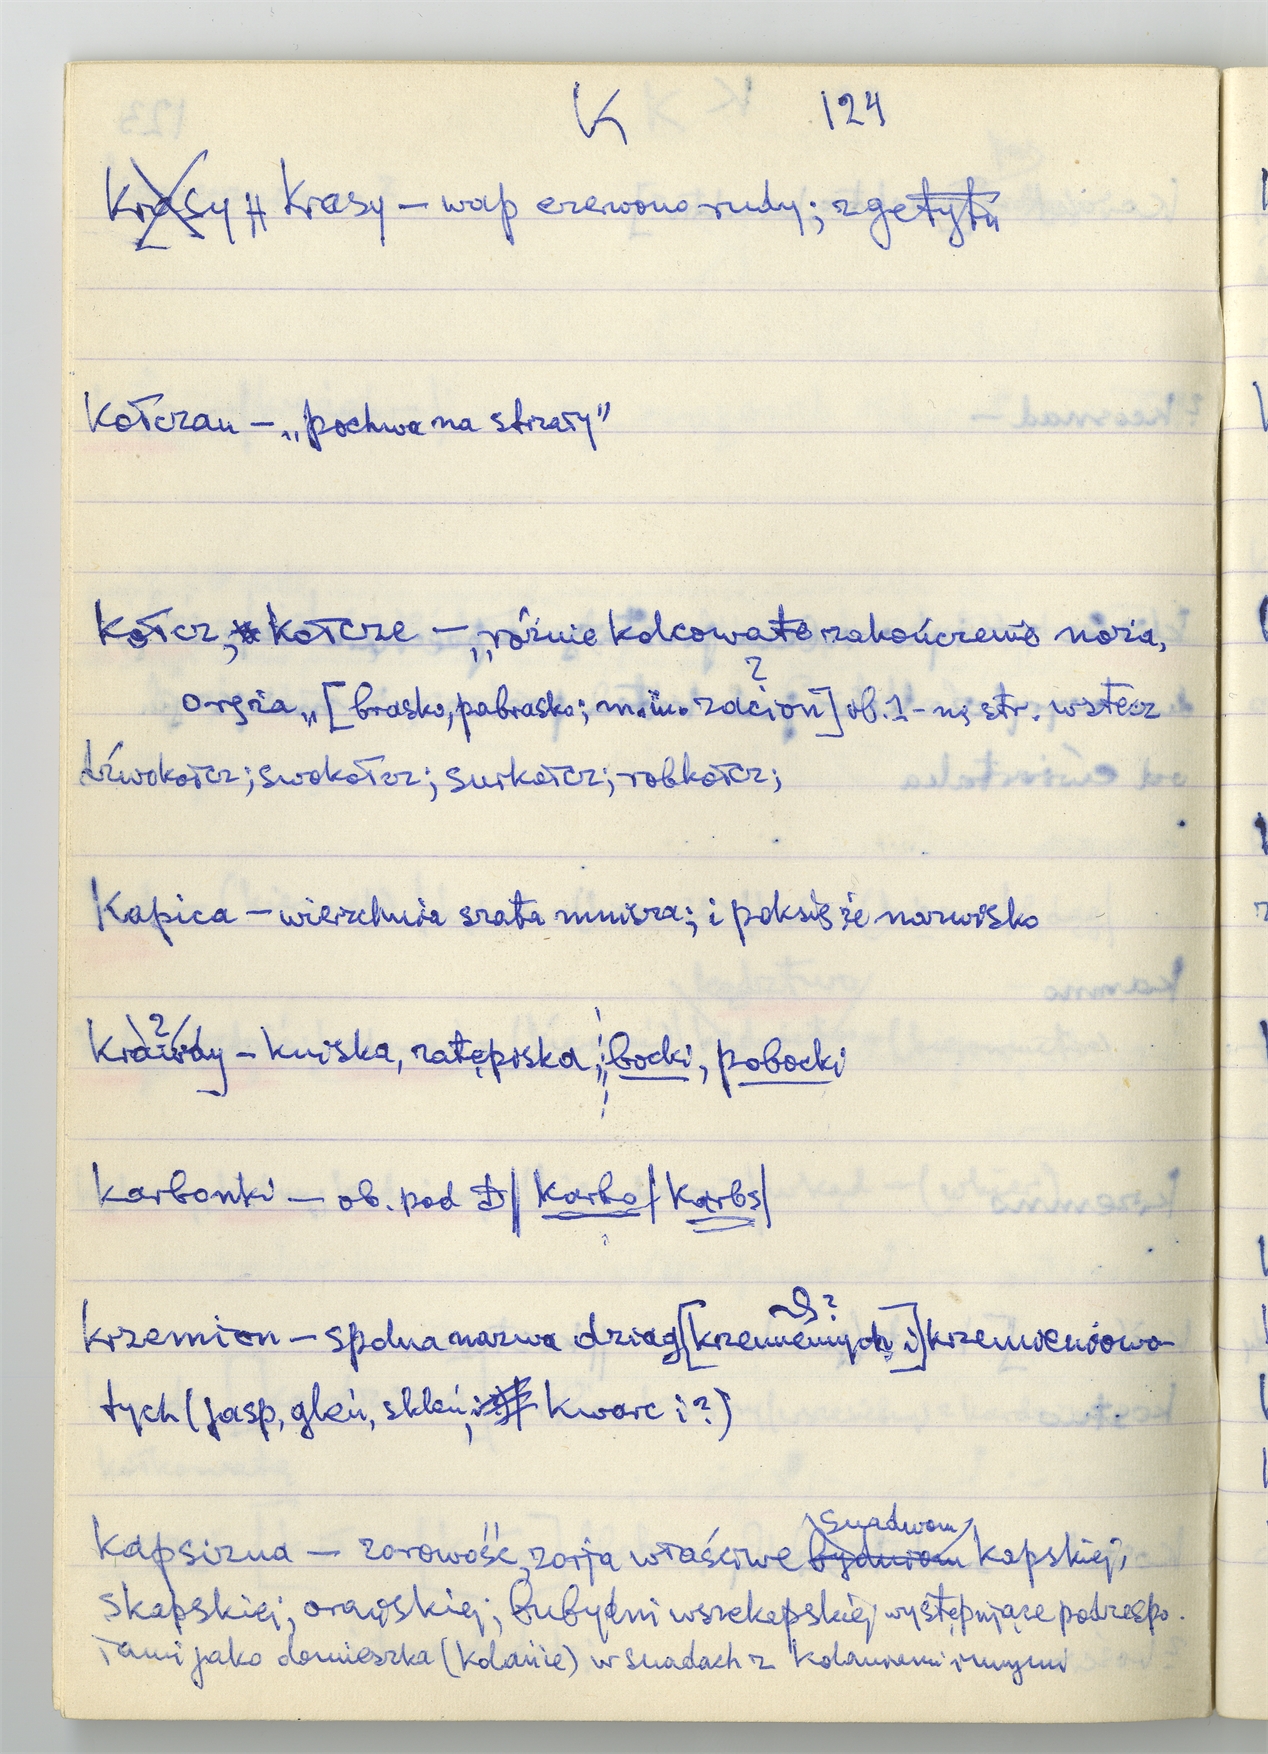 K 124
Krasy # Krasy – wap czerwono rudy; zgetytu
Kołczan – „pochwa na strzały"
Kołcz, Kołcze – „różnie kolcowate zakończenie noża,
?
oręża„ [brasko, pabrasko; m.in. zdcioń] ob. 1-ną str. wstecz
dźwokołcz; swokołcz; surkołcz; robkołcz;
Kapica – wierzchnia szata mnisza; i poksięże nazwisko
?
– kniska, zatępiska; bocki, pobocki
Karbonki – ob. pod Đ| Karbo | Karbs |
?
krzemion – spólna nazwa dziag [krzemiennych i] krzemieniowa-
tych (jasp, gleń, skleń, kwarc i?)
snadwom
Kapsizna – zorowość, zorja właściwe bydwiom kapskiej;
skapskiej; orapskiej; bubydni wszekapskiej występujące podzespo-
łami jako domieszka (kolanie) w snadach z kolaniemi innymi